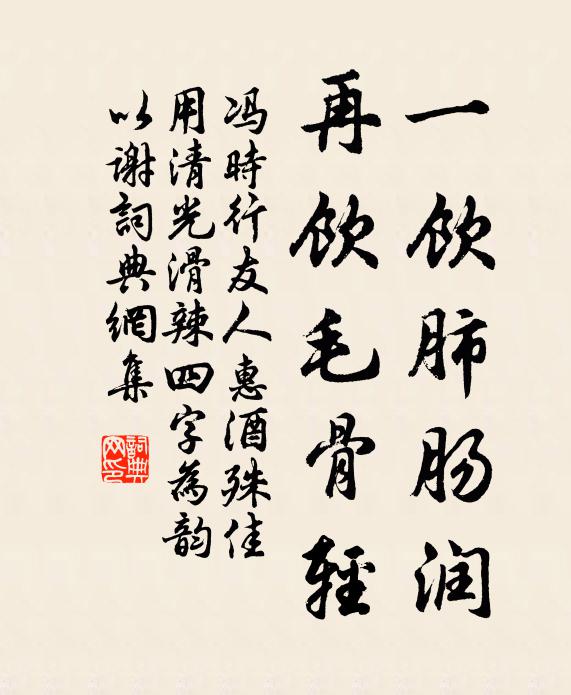 一饮肺肠润
再饮毛骨輕
冯時行友人惠酒殊佳
用清光滑辣四字為韵
以谢詞典網集
詞典
网印